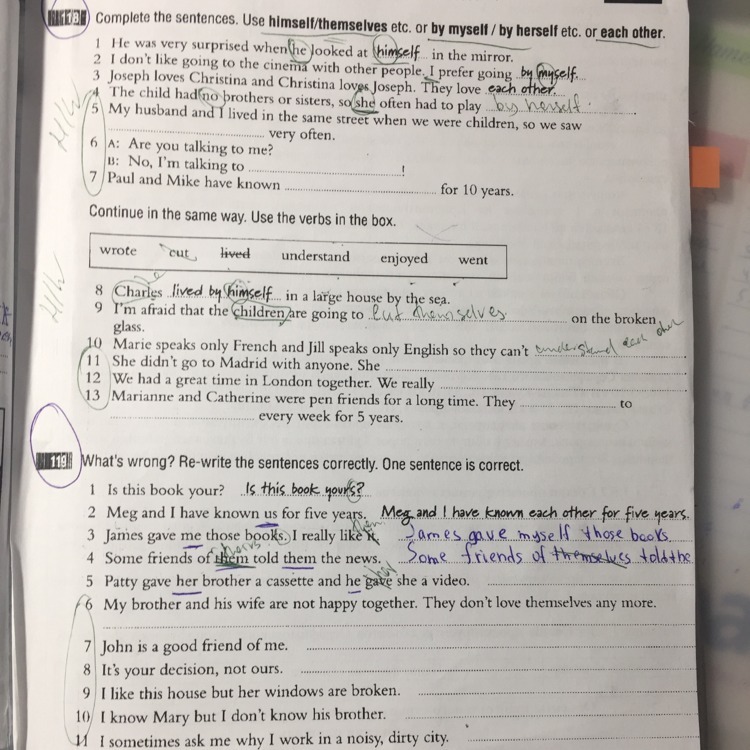 118 Complete the sentences. Use himself/themselves etc. or by myself / by herself etc. or each other.
1 He was very surprised when he looked at himself in the mirror.
2 I don't like going to the cinema with other people. I prefer going by myself.
3 Joseph loves Christina and Christina loves Joseph. They love each other.
4 The child had no brothers or sisters, so she often had to play by herself.
H/W
5 My husband and I lived in the same street when we were children, so we saw
very often.
6 A: Are you talking to me?
B: No, I'm talking to !
7 Paul and Mike have known for 10 years.
Continue in the same way. Use the verbs in the box.
wrote cut lived understand enjoyed went
H/W
he
8 Charles lived by himself in a large house by the sea.
9 I'm afraid that the children are going to cut themselves on the broken
glass.
10 Marie speaks only French and Jill speaks only English so they can't understand each other
11 She didn't go to Madrid with anyone. She
12 We had a great time in London together. We really
13 Marianne and Catherine were pen friends for a long time. They to
every week for 5 years.
119 What's wrong? Re-write the sentences correctly. One sentence is correct.
1 Is this book your? Is this book yours?
2 Meg and I have known us for five years. Meg and I have known each other for five years.
them
3 James gave me those books. I really like it. James gave myself those books
theirs
4 Some friends of them told them the news. Some friends of themselves told the
5 Patty gave her brother a cassette and he gave she a video.
6 My brother and his wife are not happy together. They don't love themselves any more.
7 John is a good friend of me.
8 It's your decision, not ours.
9 I like this house but her windows are broken.
10 I know Mary but I don't know his brother.
11 I sometimes ask me why I work in a noisy, dirty city.